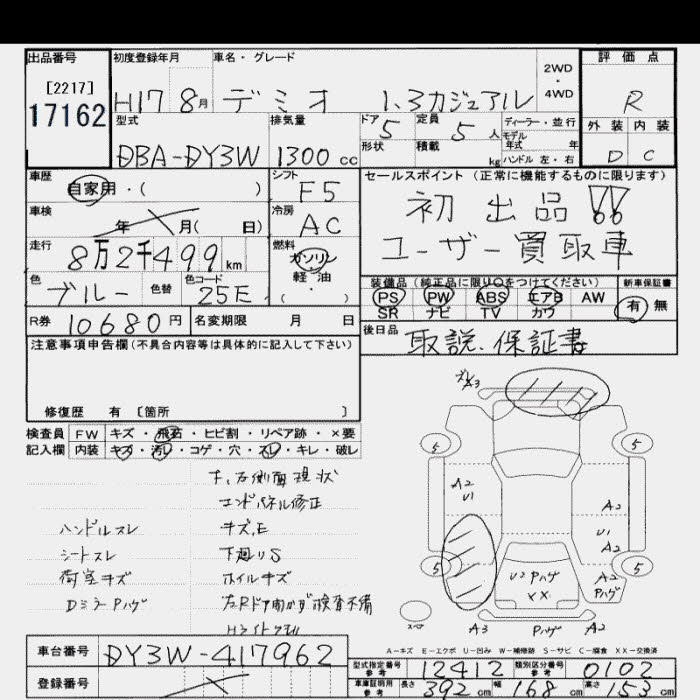 出品番号
[2217]
17162
初度登録年月
H17 8月
車名・グレード
デミオ 1.3カジュアル
2WD
・
4WD
評価点
R
外装 内装
D C
型式
DBA-DY3W
排気量
1300 cc
ドア 5
定員 5 人
形状
積載 kg
ディーラー・並行
モデル
年式 年
ハンドル 左・右
車歴
自家用・( )
シフト
F5
車検
年 月( 日)
冷房
AC
走行
8万2千499 km
燃料
ガソリン
軽・油
( )
色
ブルー
色替
色コード
25E
R券 10680 円
名変期限 月 日
セールスポイント (正常に機能するものに限ります)
初出品!!
ユーザー買取車
装備品(純正品に限り○をつけてください)
PS PW ABS エアB AW
SR ナビ TV カワ
新車保証書
有 無
後日品
取説、保証書
注意事項申告欄(不具合内容等は具体的に記入して下さい)
修復歴 有 [箇所 ]
検査員
記入欄
FW キズ・飛石・ヒビ割・リペア跡・×要
内装 キズ・汚レ・コゲ・穴・スレ・キレ・破レ
エンドパネル修正
キズ,E
ハンドルスレ
シートスレ
下廻りS
荷室キズ
ホイルキズ
DミラーPハゲ
A3
5
5
A2
U1
A2
U1
A2
5
5
A2
Pハゲ
U2 Pハゲ
XX
A3
Pハゲ
A2
A-キズ E-エクボ U-凹み W-補修跡 S-サビ C-腐食 XX-交換済
車台番号
DY3W-417962
登録番号
型式指定番号
参考
12412
類別区分番号
参考
0102
車庫証明用
参考
長さ 392 cm 幅 168 cm 高さ 153 cm